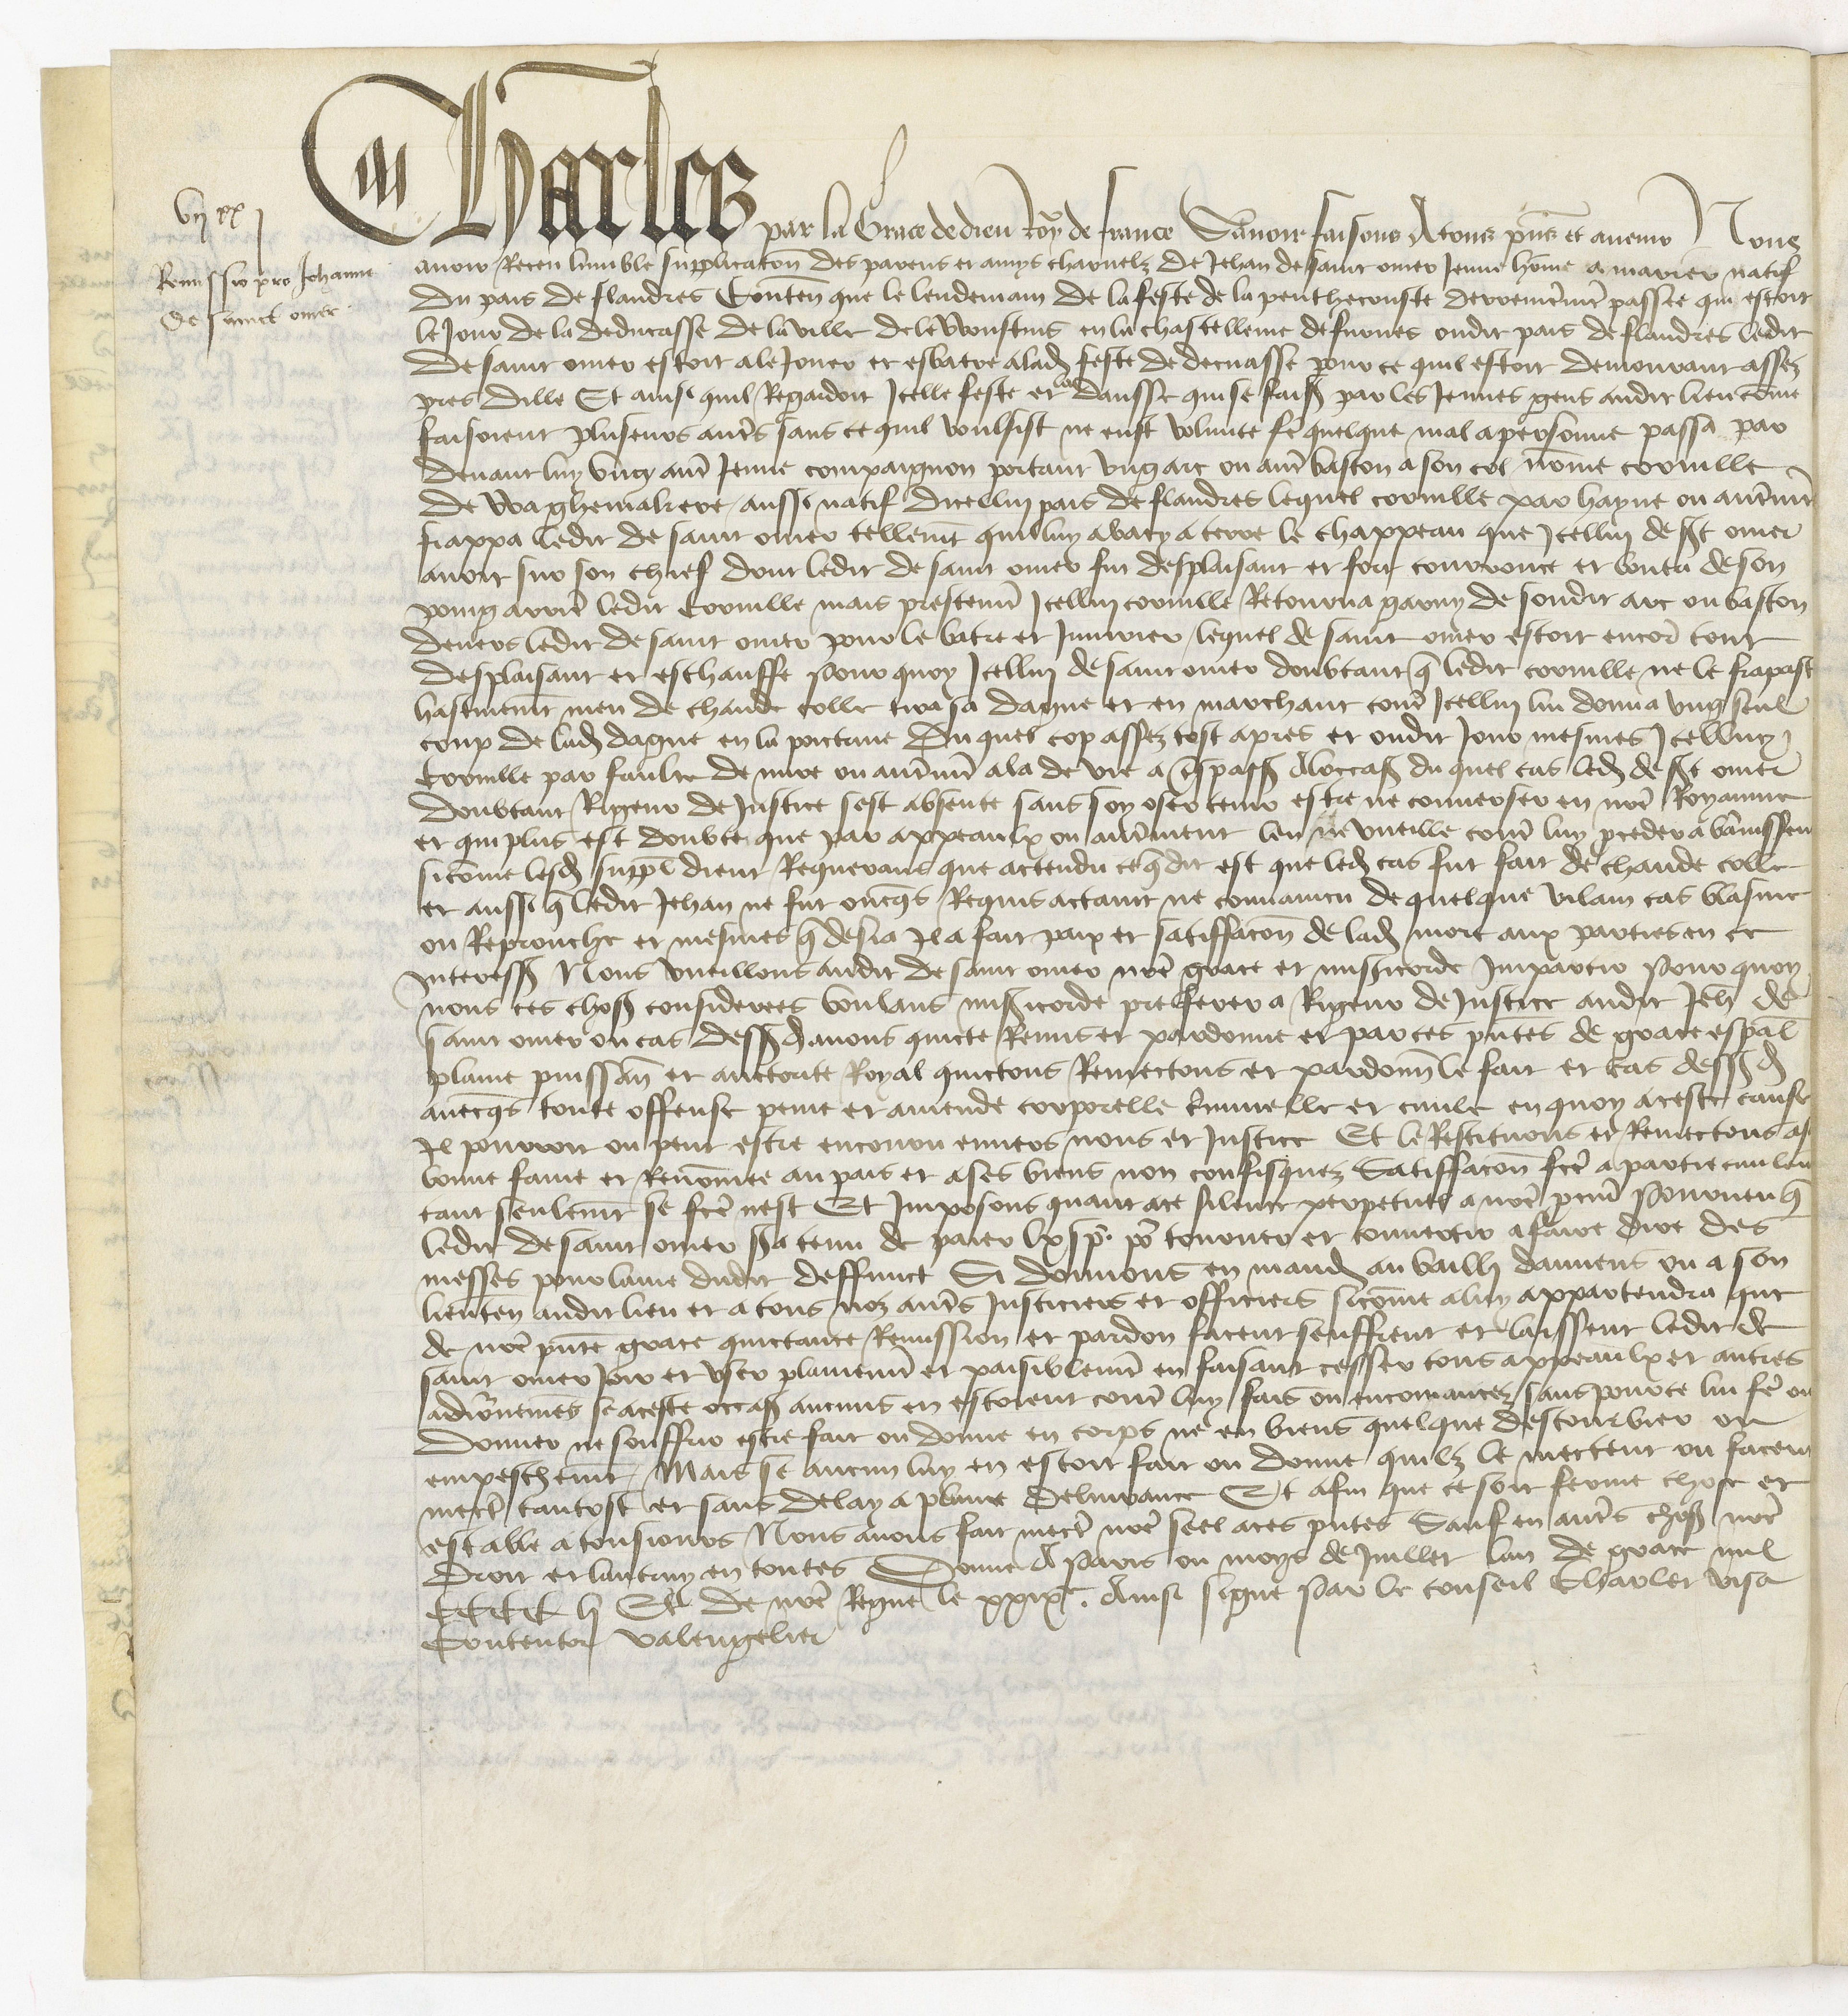 Charles par la Grace de dieu Roy de france Savoir faisons A tous pns et avenir Nous
vij xx j
Remissio pro Johanne
de sainct omer
avoir Receu lumble supplicacon des parens et amys charnelz de Jehan de saint omer Jenne home a marier natif
du pais de flandres Conten que le lendemain de la feste de la penthecouste derrenierement passee qui estoit
le Jour de la deducasse de la ville de en la chastellenie de furnes oudit pais de flandres ledit
de saint omer estoit ale Jouer et esbatre a lad feste de decuasse pour ce quil estoit demourant assez
pres dille Et ainsi quil Regardoit Icelle feste et la dansse qui se fais par les Jennes gens audit lieu come
faisoient pluseurs autrs sans ce quil voulsist ne eust volunte fe quelque mal a personne passa par
devant luy ung autr Jenne compaignon portant ung arc ou autr baston a son col nome cornille
de Waghemakere aussi natif dicelluy pais de flandres lequel cornille par hayne ou autrmt
frappa ledit de saint omer tellemt quil luy abaty a terre le chappeau que Icelluy de st omer
avoit sur son chief dont ledit de saint omer fut desplaisant et fort courrouce et bouta de son
poing arrier ledit Cornille mais prestemt Icelluy cornille Retourna garny de sondit arc ou baston
devers ledit de saint omer pour le batre et Injurier lequel de saint omer estoit encor tout
desplaisant et eschauffe Pour quoy Icelluy de saint omer doubtant q ledit cornille ne le frapast
hastivemt meu de chaude colle tira sa dague et en marchant contr Icelluy lui donna ung seul
coup de lad dague en la poictrine Du quel cop assez tost apres et oudit Jour mesmes Icelluy
Cornille par faulte de mire ou autrmt ala de vie a trespass A loccas du quel cas led de st omer
doubtant Rigeur de Justice sest absente sans soy oser tenir estre ne converser en nre Royaume
et qui plus est doubte que par appeaulx ou autrement len ne vueille contr luy preder a banissem
si come lesd suppl dient Requerans que actendu ce q dit est que led cas fut fait de chaude colle
et aussi q ledit Jehan ne fut oncqs Requis actaint ne convaincu de quelque vilain cas blasme
ou Reprouche et mesmes q desia Il a fait paix et satiffacon de lad mort aux parties en ce
Interess Nous vueillons audit de saint omer nre grace et misicorde Impartir Pour quoy
nous ces chos considerees voulans misicorde preferer a Rigeur de Justice audit Jeh de
saint omer ou cas dessd avons quicte Remis et pardonne et par ces pntes de grace espal
plaine puissan et auctorite Royal quictons Remectons et pardonn le fait et cas dessd
avecqs toute offense peine et amende corporelle criminelle et civile en quoy a ceste cause
Il pourroit ou peut estre encouru envers nous et Justice Et le Restituons et Remectons a sa
bonne fame et Renomee au pais et a ses biens non confisquez Satiffacon fce a partie civilem
tant seulemt se fce nest Et Imposons quant a ce silence perpetuel a nre pcur Pourveu q
ledit de saint omer sa tenu de paier lx sp. po tourner et convertir a faire dire des
messes pour lame dudit deffunct Si donnons en mand au bailli damiens ou a son
lieuten audit lieu et a tous noz autrs Justiciers et officiers si come a luy appartendra que
de nre pnte grace quictance Remission et pardon facent seuffrent et laissent ledit de
saint omer Joir et user plainemt et paisiblemt en faisant cesser tous appeaulx et autres
adiournemes se a ceste occas aucuns en estoient contr luy fais ou encomancez sans pour ce lui fe ou
donner ne souffrir estre fait ou donne en corps ne en biens quelque destourbier ou
empeschemt Mais se aucun luy en estoit fait ou donne quilz le mectent ou facent
mectr tantost et sans delay a plaine delivrance Et afin que ce soit ferme chose et
estable a tousiours Nous avons fait mectr nre seel a ces pntes Sauf en autrs chos nre
droit et lautruy en toutes Donne A Paris ou moys de Juillet lan de grace mil
CCCC h Et de nre Regne le xxixe. Ainsi signe Par le conseil Charlet visa
Contentor Valengelier